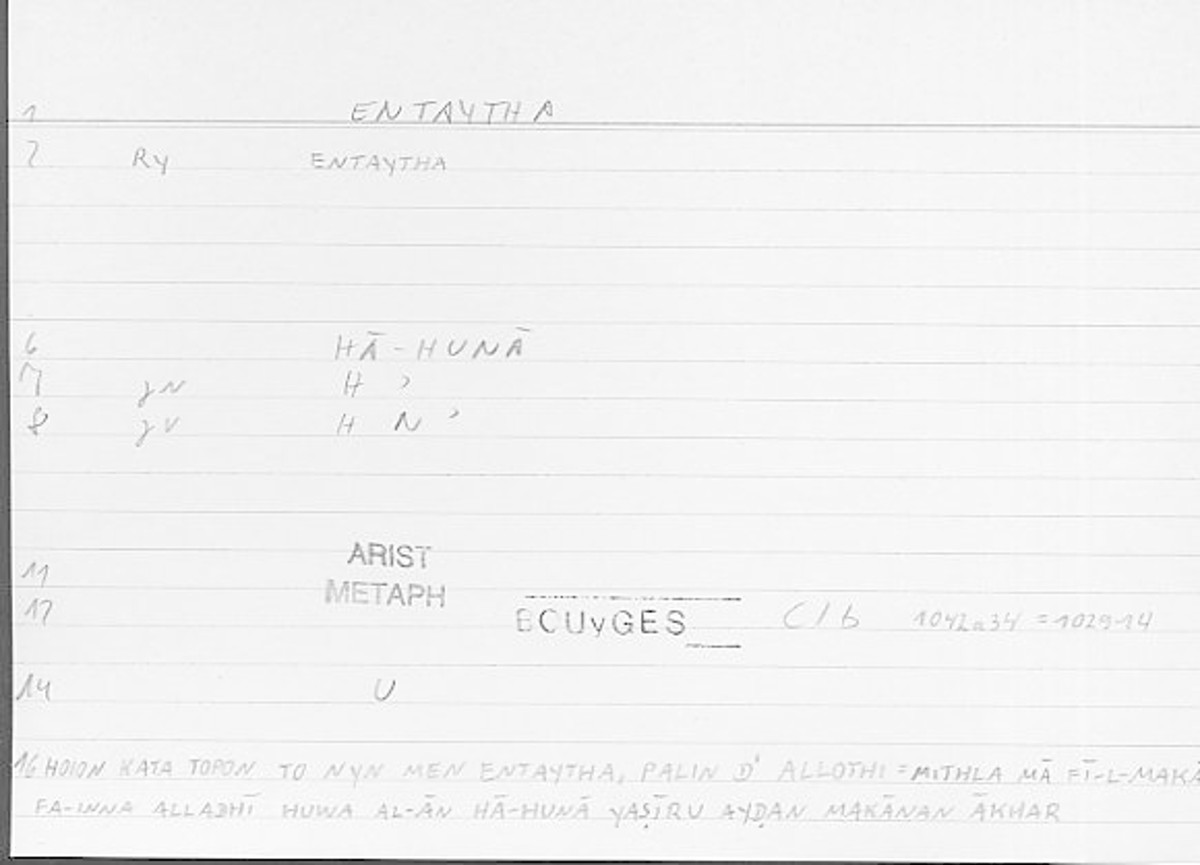 1 ENTAYTHA
2 Ry ENTAYTHA
6 HĀ-HUNĀ
7 JN H ʾ
8 JV H N ʾ
11 ARIST
METAPH
12 BOUyGES C/b 1042a34 = 1029-14
14 U
16 HOION KATA TOPON TO NYN MEN ENTAYTHA, PALIN D' ALLOTHI = MITHLA MĀ FĪ-L-MAKĀ
FA-INNA ALLADHĪ HUWA AL-ĀN HĀ-HUNĀ YAṢĪRU AYḌAN MAKĀNAN ĀKHAR